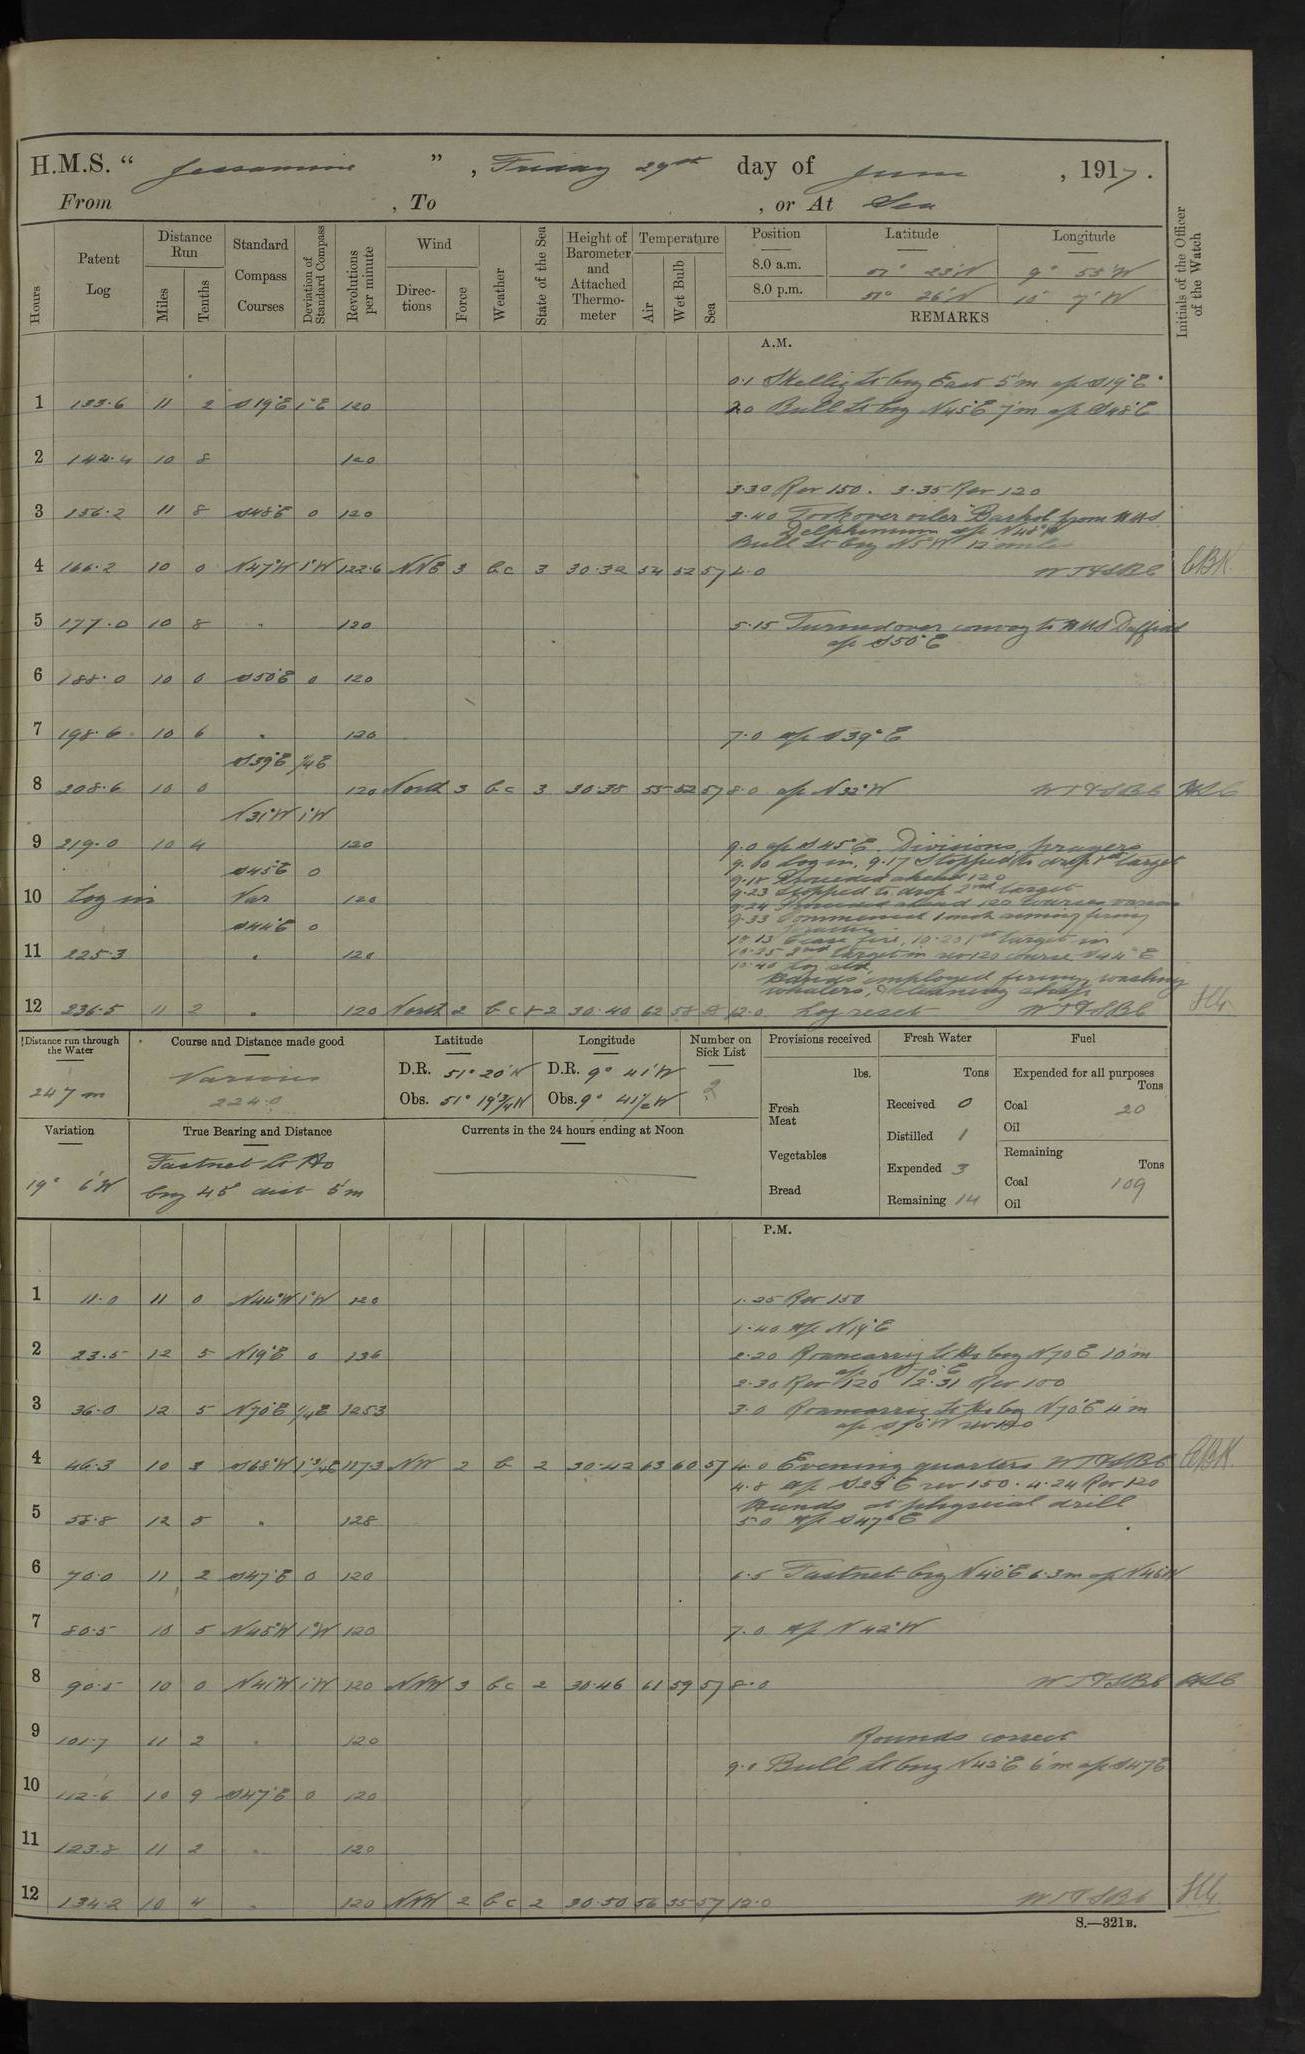 H.M.S. " Jessamine ", Friday 29th day of June, 1917.
From , To , or At Sea
Hours
Patent Log
Distance Run
Miles
Tenths
Standard Compass Courses
Deviation of Standard Compass
Revolutions per minute
Wind
Directions
Force
Weather
State of the Sea
Height of Barometer and Attached Thermometer
Temperature
Air
Wet Bulb
Sea
Position Latitude Longitude
8.0 a.m. 51° 23'N 9° 53'W
8.0 p.m. 51° 26'N 10° 7'W
REMARKS
Initials of the Officer of the Watch
A.M.
0.1 Skellig Lt brg East 5'm a/c S19°E
1 133.6 11 2 S19°E 1°E 120 2.0 Bull Lt brg N45°E 7'm a/c S48°E
2 144.4 10 8 120
3.30 Rev 150. 3.35 Rev 120
3 156.2 11 8 S48°E 0 120 3.40 Took over oiler from HMS
Delphinium a/c N48°W
Bull Lt brg N5°W 12 miles
4 166.2 10 0 N47°W 1°W 122.6 NNE 3 bc 3 30.32 54 52 57 4.0 WT&SBC
5 177.0 10 8 " 120 5.15 Turned over convoy to HMS Daffodil
a/c S50°E
6 188.0 10 0 S50°E 0 120
7 198.6 10 6 " 120 7.0 a/c S39°E
S39°E 1/4E
8 208.6 10 0 120 North 3 bc 3 30.38 55 52 57 8.0 a/c N32°W WT&SBC
N31°W 1°W
9 219.0 10 4 120 9.0 a/c S45°E. Divisions, prayers
S45°E 0 9.10 Log in, 9.17 Stopped to drop 1st target
9.18 Proceeded ahead 120
9.23 Stopped to drop 2nd target
10 Log in Var 120 9.24 Proceeded ahead 120 courses various
S44°E 0 9.33 Commenced 1 inch aiming firing
practice
10.13 Cease fire, 10.20 1st target in
11 225.3 " 120 10.25 2nd target in rev 120 course S44°E
10.40 Log
Hands employed firing, washing
whalers, & cleaning ship
12 236.5 11 2 " 120 North 2 bc 2 30.40 62 58 12.0 Log reset WT&SBC
Distance run through the Water
247 m
Course and Distance made good
Various
224.0
Latitude
D.R. 51° 20'N
Obs. 51° 19 3/4'N
Longitude
D.R. 9° 41'W
Obs. 9° 41 1/2'W
Number on Sick List
2
Provisions received
lbs.
Fresh Meat
Vegetables
Bread
Fresh Water
Tons
Received 0
Distilled 1
Expended 3
Remaining 14
Fuel
Expended for all purposes
Tons
Coal 20
Oil
Remaining
Tons
Coal 109
Oil
Variation
19° 6'W
True Bearing and Distance
Fastnet Lt Ho
brg 45° dist 5'm
Currents in the 24 hours ending at Noon
P.M.
1 11.0 11 0 N44°W 1°W 120 1.25 Rev 150
1.40 a/c N19°E
2 23.5 12 5 N19°E 0 136 2.20 Roancarrig Lt Ho brg N70°E 10'm
a/c N70°E
2.30 Rev 120 2.31 Rev 100
3 36.0 12 5 N70°E 1/4E 125.3 3.0 Roancarrig Lt Ho brg N70°E 4'm
4 46.3 10 3 S68°W 1 3/4E 117.3 NW 2 b 2 30.42 63 60 57 4.0 Evening quarters WT&SBC
4.8 a/c S23°E rev 150. 4.24 Rev 120
Hands at physical drill
5 58.8 12 5 " 128 5.0 a/c S47°E
6 70.0 11 2 S47°E 0 120 6.5 Fastnet brg N40°E 6.3m a/c N46°W
7 80.5 10 5 N45°W 1°W 120 7.0 a/c N42°W
8 90.5 10 0 N41°W 1°W 120 NNW 3 bc 2 30.46 61 59 57 8.0 WT&SBC
9 101.7 11 2 " 120 Rounds correct
9.0 Bull Lt brg N43°E 6'm a/c S47°E
10 112.6 10 9 S47°E 0 120
11 123.8 11 2 " 120
12 134.2 10 4 " 120 NNW 2 bc 2 30.50 56 55 57 12.0 WT&SBC
S.—321B.